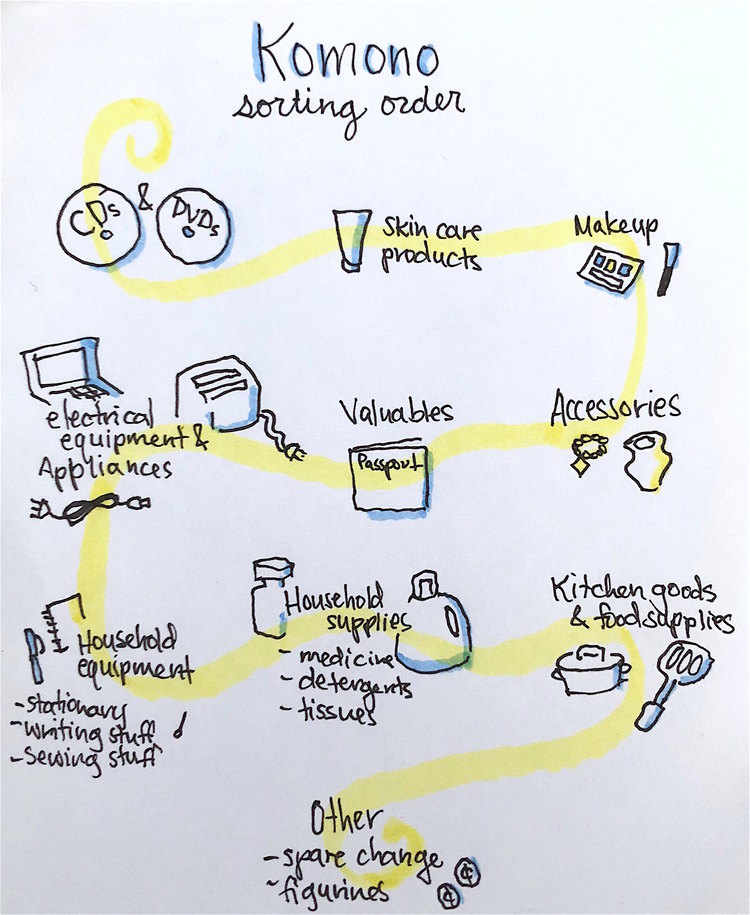 Komono
sorting order
CDs & DVDs
Skin care
products
Makeup
electrical
equipment &
Appliances
Valuables
Passport
Accessories
Household
equipment
- stationary
- writing stuff
- Sewing stuff
Household
supplies
- medicine
- detergents
- tissues
Kitchen goods
& food supplies
Other
- spare change
- figurines
¢
¢